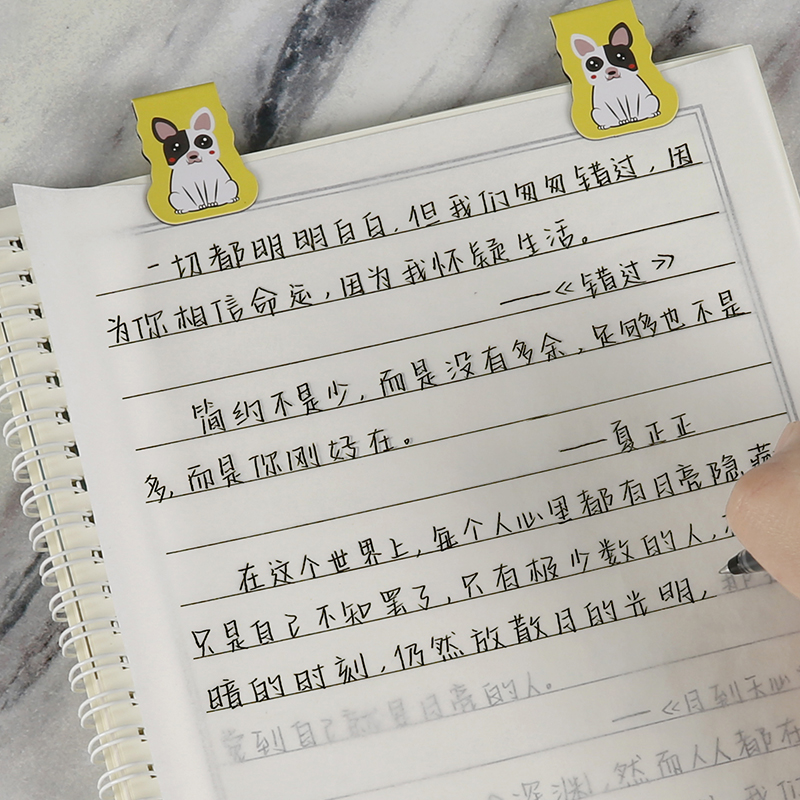 一切都明明白白,但我们匆匆错过,因
为你相信命运,因为我怀疑生活。
——《错过》
简约不是少,而是没有多余,足够也不是
多,而是你刚好在。
——夏正正
在这个世界上,每个人心里都有月亮隐藏
只是自己不知罢了,只有极少数的人,
暗的时刻,仍然放散月的光明,
觉到自己就是月亮的人。
——《月到天心
深渊,然而人人都在
我们